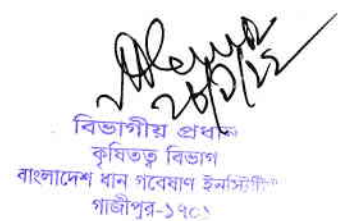 ২৮/১/২১
বিভাগীয় প্রধান
কৃষিতত্ত্ব বিভাগ
বাংলাদেশ ধান গবেষণা ইনস্টিটিউট
গাজীপুর-১৭০১